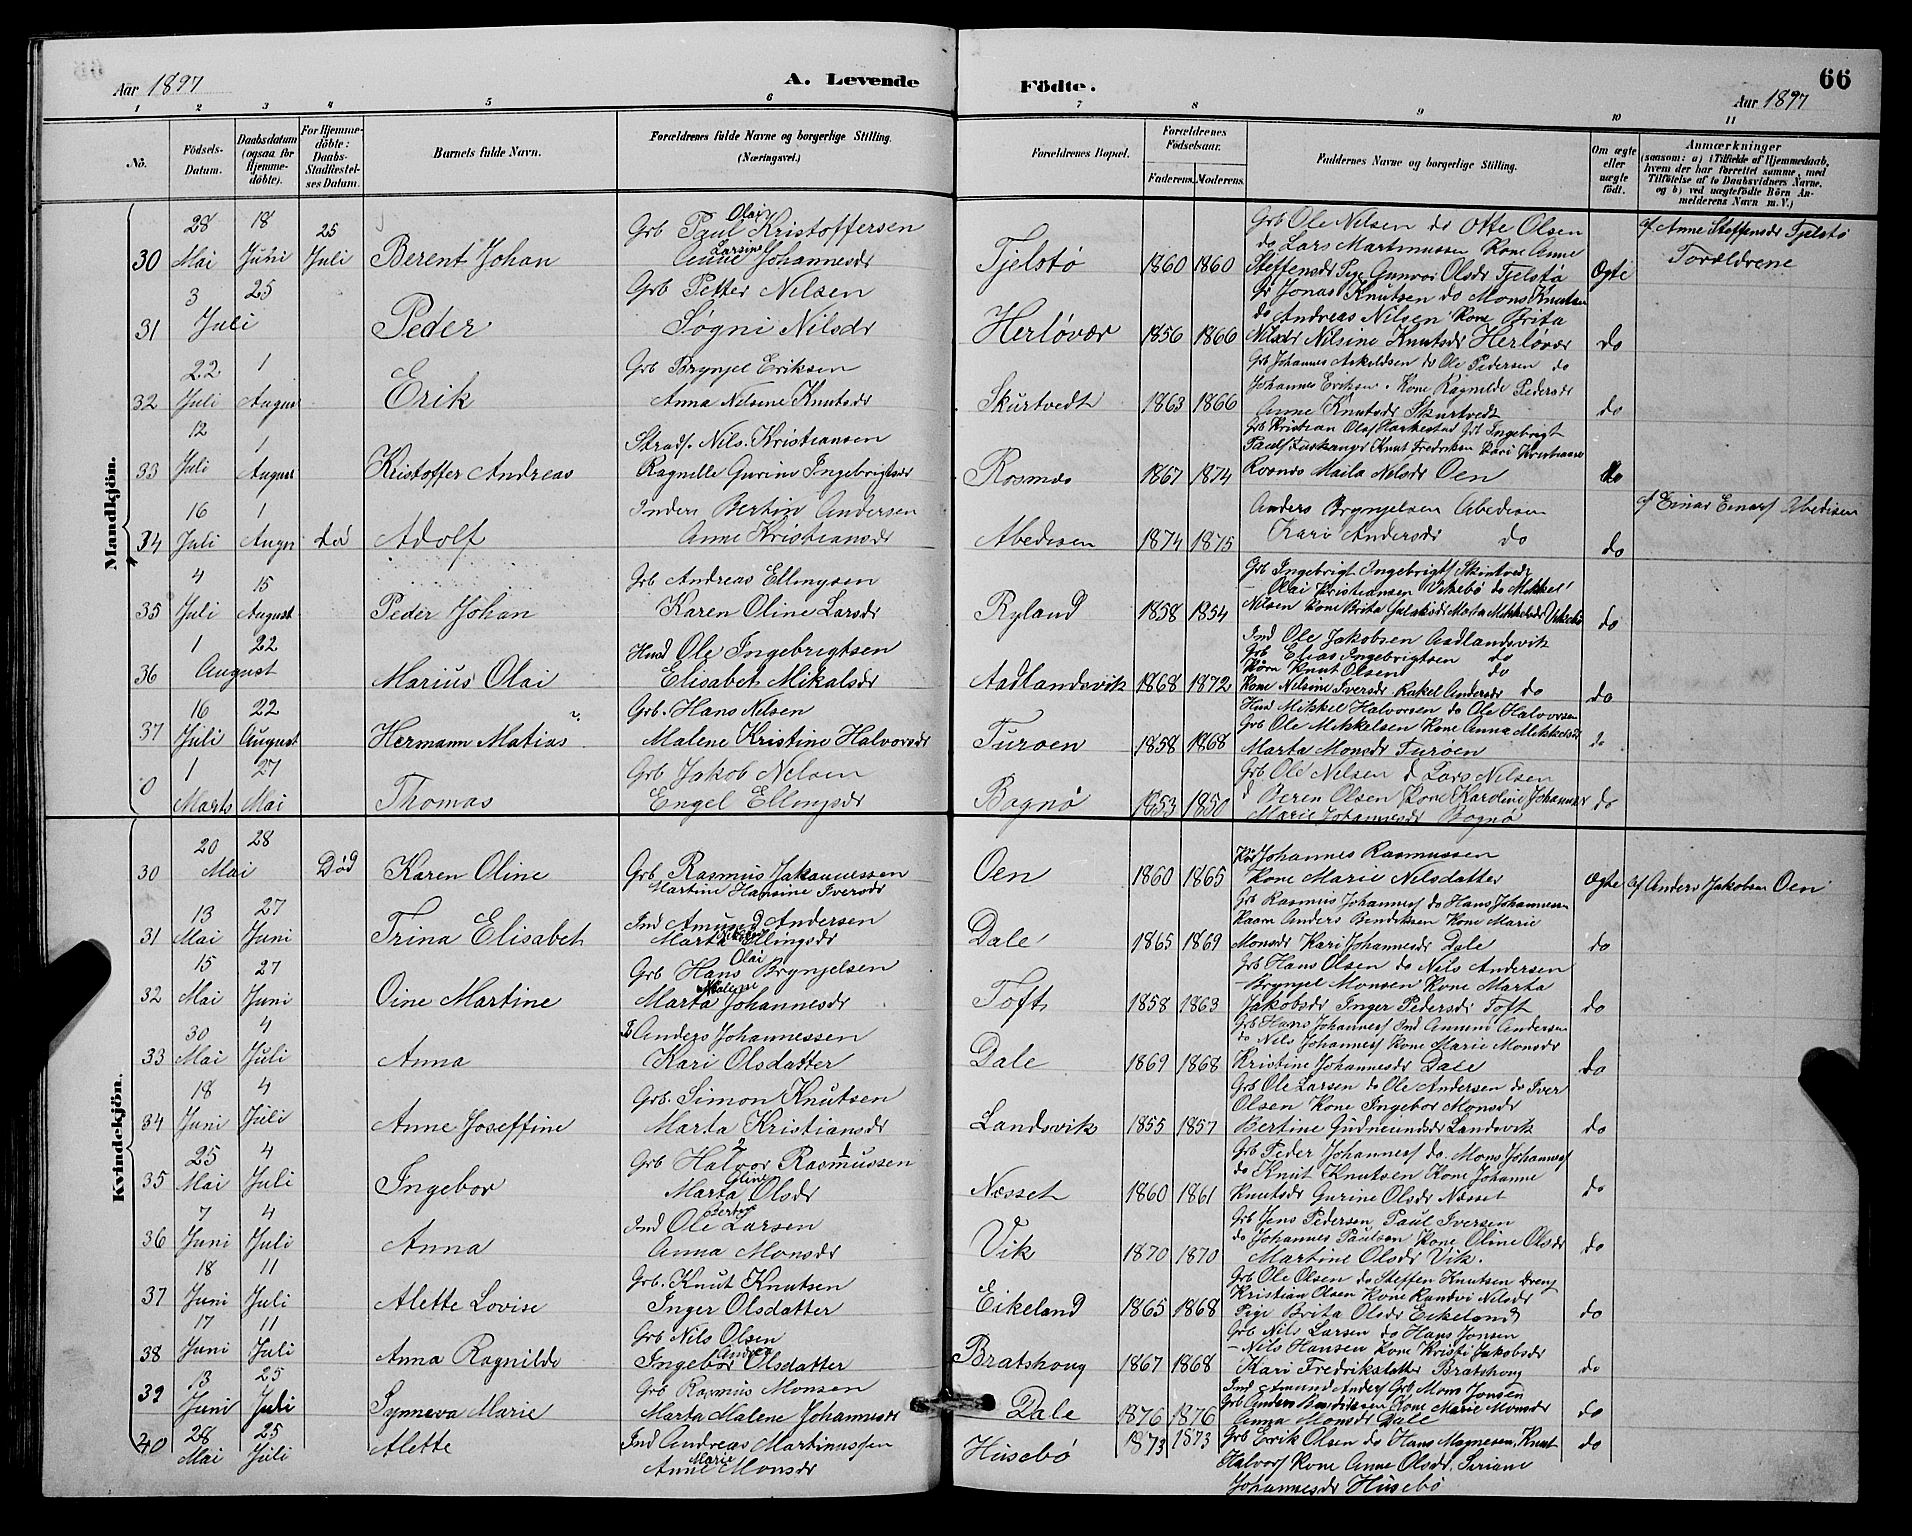 Aar 1897
A. Levende
Födte.
66
Aar 1897
1 2 3 4 5 6 7 8 9 10 11
No.
Födsels-
Datum.
Daabsdatum
(ogsaa for
Hjemme-
döbte).
For Hjemme-
döbte:
Daabs-
Stadfestel-
ses Datum.
Barnets fulde Navn.
Forældrenes fulde Navne og borgerlige Stilling.
(Næringsvei.)
Forældrenes Bopæl.
Forældrenes
Födselsaar.
Faderens. Moderens.
Faddernes Navne og borgerlige Stilling.
Om ægte
eller
uægte
födt.
Anmærkninger
(saasom: a) i Tilfælde af Hjemmedaab,
hvem der har forrettet samme, med
Tilföielse af to Daabsvidners Navne,
og b) ved uægtefödte Börn An-
melderens Navn m. V.)
Mandkjön.
28 18 25
30 Mai Juni Juli Berent Johan
Grb Paul Olai Kristoffersen
Anne Larsine Johannesdr
Tjelstø 1860 1860
Grb Ole Nilsen do Otte Olsen
do Lars Martinussen Kone Anne
Steffensdr Pige Gunvor Olsdr Tjelstø
Ogte
af Anne Steffensdr Tjelstø
Forældrene
3 25
31 Juli Peder
Grb Petter Nilsen
Søgni Nilsdr
Herløvær 1856 1866
Gr Jonas Knutsen do Mons Knutsen
do Andreas Nilsen Kone Brita
Nilsdr Nilsine Knutsdr Herløvær
do
22 1
32 Juli August Erik
Grb Brynjel Eriksen
Anna Nilsine Knutsdr
Skurtvedt 1863 1866
Grb Johannes Askeldsen do Ole Pedersen do
Johannes Eriksen. Kone Ragnilde Pedersdr
Anne Knutsdr Skurtvedt
do
12 1
33 Juli August Kristoffer Andreas
Strads. Nils Kristiansen
Ragnille Gurine Ingebrigtsdr
Rosmes 1867 1874
Grb Kristian Olas Grb Ingebrigt
Knut Fredriksen Kristianse
Maila Nilsdr Oen
do
16 1
34 Juli Augu Død Adolf
Inders Bertin Andersen
Anne Kristiansdr
Abedisen 1874 1875
Anders Brynjelsen Abedisen
Kari Andersdr do
do
af Einar Einars Abedisen
4 15
35 Juli August Peder Johan
Grb Andreas Ellingsen
Karen Oline Larsdr
Ryland 1858 1854
Grb Ingebrigt Ingebrigts Skurtvedt
Olai Kristiansen Vikebø do Mikkel
Nilsen Kone Brita Marta Mikkelsdr Vikebø
do
1 22
36 August Marius Olai
Husd Ole Ingebrigtsen
Elisabet Mikalsdr
Aadlandsvik 1868 1872
Ind Ole Jakobsen Aadlandsvik
Grb Elias Ingebrigtsen do
Knut Olsen do
Kone Nilsine Iversdr Rakel Andersdr do
do
16 22
37 Juli August Hermann Matias
Grb. Hans Nilsen
Malene Kristine Halvorsdr
Turøen 1858 1868
Husd Mikkel Halvorsen do Ole Halvorsen
Grb Ole Mikkelsen Kone Anna Mikkelsdr
Marta Monsdr Turøen
do
1 27
0 Marts Mai Thomas
Grb Jakob Nelsen
Engel Ellingsdr
Bognø 1853 1850
Grb Ole Nilsen d Lars Nilsen
d Beren Olsen Kone Karoline Johannes
Marie Johannesdr Bognø
do
Kvindekjön.
20 28
30 Mai Død Karen Oline
Grb Rasmus Johannessen
Martine Hansine Iversdr
Oen 1860 1865
Kår Johannes Rasmussen
Kone Marie Nilsdatter
Ogte
af Anders Jakobsen Oen
13 27
31 Mai Juni Trina Elisabet
Ind Amund Andersen
Marta Ellingsdr
Dale 1865 1869
Grb Rasmus Johannes do Hans Johannesen
Kaarm Anders Bendiksen Kone Marie
Monsdr Kari Johannesdr Dale
do
15 27
32 Mai Juni Oine Martine
Grb Hans Olai Brynjelsen
Marta Malene Johannesdr
Toft 1858 1863
Grb Hans Olsen do Nils Andersen
- Brynjel Monsen Kone Marta
Jakobsdr Inger Pedersdr Toft
do
30 4
33 Mai Juli Anna
Anders Johannessen
Kari Olsdatter
Dale 1869 1868
Grb Hans Johannes Ind Amund Andersen
do Nils Johannes Kone Marie Monsdr
Kristine Johannesdr Dale
do
18 4
34 Juni Juli Anne Joseffine
Grb. Simon Knutsen
Marta Kristiansdr
Landsvik 1855 1857
Grb Ole Larsen do Ole Andersen do Iver
Olsen Kone Ingebor Monsdr
Bertine Gudmundsdr Landsvik
do
25 4
35 Mai Juli Ingebor
Grb Halvor Rasmussen
Marta Oline Olsdr
Næsset 1860 1861
Grb Peder Johannes do. Mons Johannes
do Knut Knutsen Kone Johanne
Knutsdr Gurine Olsdr Næsset
do
7 4
36 Juni Juli Anna
Ind Ole Larsen
Anna Monsdr
Vik 1870 1870
Grb Jens Pedersen Paul Iversen
do Johannes Paulsen Kone Oline Olsdr
Martine Olsdr Vik.
do
18 11
37 Juni Juli Alette Lovise
Grb. Knut Knutsen
Inger Olsdatter
Eikeland 1865 1868
Grb Ole Olsen do Steffen Knutsen Dreng
Kristian Olsen Kone Randvi Nilsdr
Pige Brita Olsdr Eikeland
do
17 11
38 Juni Juli Anna Ragnilde
Grb Nils Olsen
Ingebor Andrea Olsdatter
Bratshoug 1867 1868
Grb Nils Larsen do Hans Jonsen
- Nils Hansen Kone Kristi Jakobsdr
Kari Fredriksdatter Bratshoug
do
13 25
39 Juni Juli Synneva Marie
Grb Rasmus Monsen
Marta Malene Johannesdr
Dale 1876 1876
Ind Amund Anders Grb Mons Jonsen
Grb Anders Bendiksen Kone Marie Monsdr
Anna Monsdr Dale
do
28 25
40 Mai Juli Alette
Ind Andreas Martinussen
Anne Marie Monsdr
Husebø 1873 1873
Grb Erik Olsen do Hans Magnesen, Knut
Halvors Kone Anne Olsdr, Siriane
Johannesdr Husebø
do